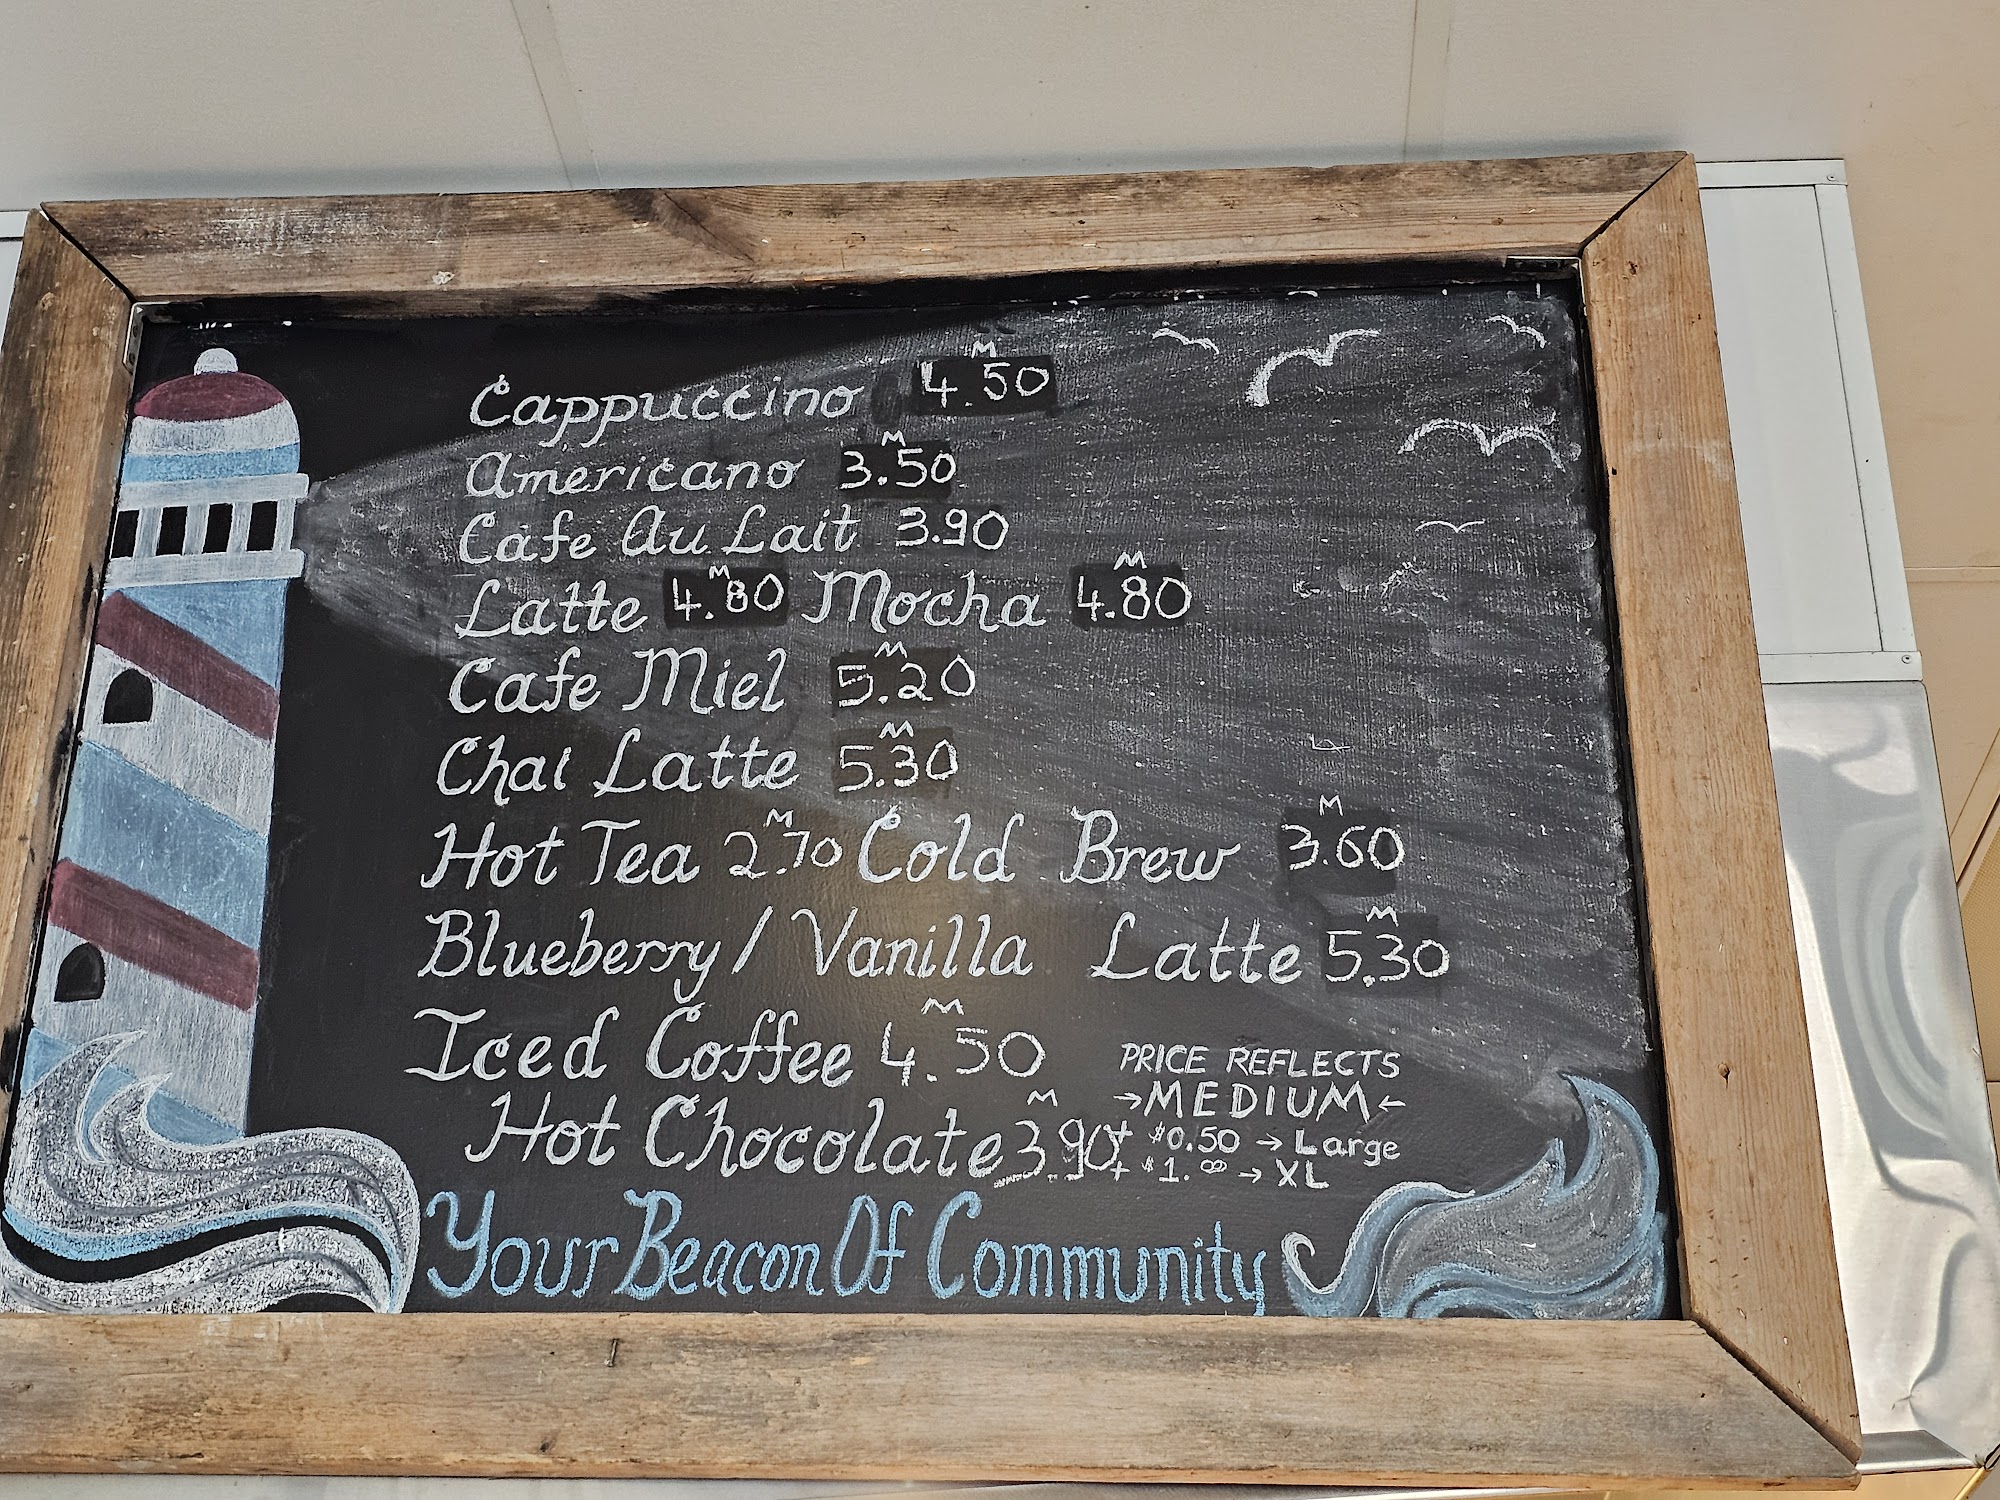 M
Cappuccino 4.50
M
Americano 3.50
Cafe Au Lait 3.90
M M
Latte 4.80 Mocha 4.80
M
Cafe Miel 5.20
M
Chai Latte 5.30
M M
Hot Tea 2.70 Cold Brew 3.60
M
Blueberry/Vanilla Latte 5.30
M
Iced Coffee 4.50
M
Hot Chocolate 3.90
PRICE REFLECTS
→MEDIUM←
+ $0.50 → Large
+ $1.00 → XL
Your Beacon Of Community